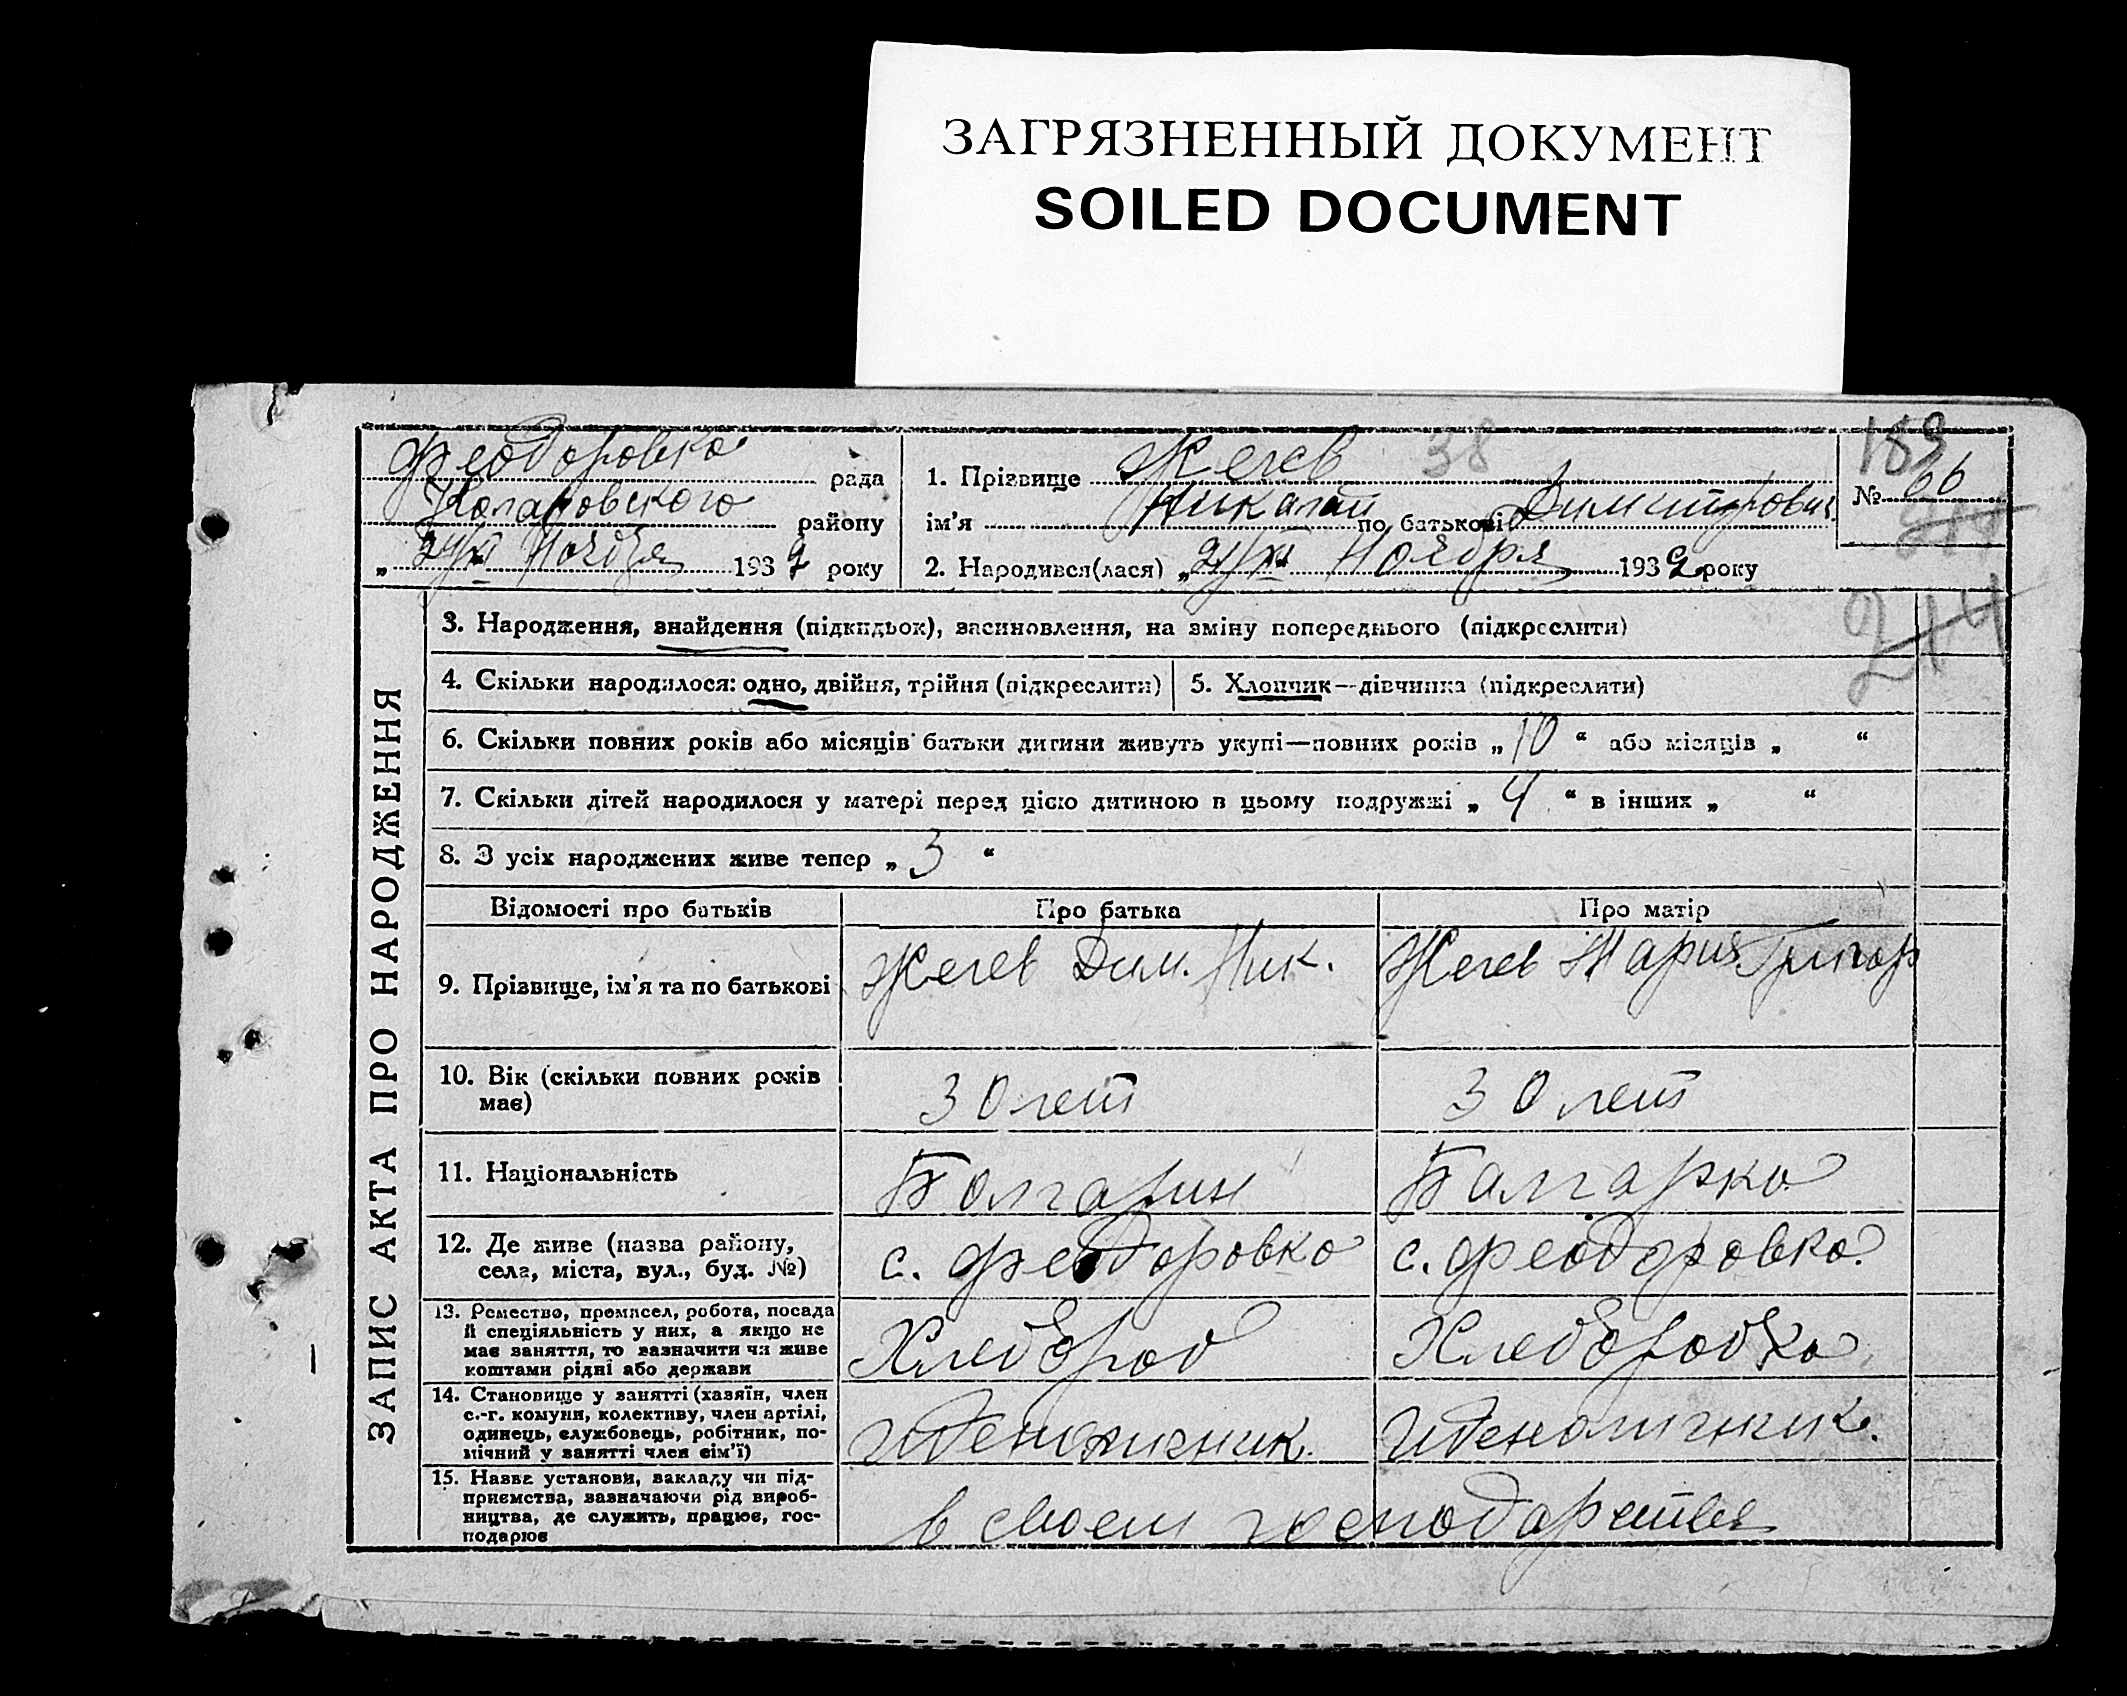 ЗАГРЯЗНЕННЫЙ ДОКУМЕНТ
SOILED DOCUMENT
Феодоровка рада
Коларовского району
Ноября 1932 року
1. Прізвище Жегев 38
ім'я Николай по батькові Димитрович
2. Народився(лася) Ноября 1932 року
189
№ 66
214
ЗАПИС АКТА ПРО НАРОДЖЕННЯ
3. Народження, знайдення (підкидьок), засиновлення, на зміну попереднього (підкреслити)
4. Скільки народилося: одно, двійня, трійня (підкреслити)
5. Хлопчик—дівчинка (підкреслити)
6. Скільки повних років або місяців батьки дитини живуть укупі—повних років „10“ або місяців „ “
7. Скільки дітей народилося у матері перед цією дитиною в цьому подружжі „4“ в інших „ “
8. З усіх народжених живе тепер „3“
Відомості про батьків Про батька Про матір
9. Прізвище, ім'я та по батькові Жегев Дим. Ник. Жегев Мария Григор
10. Вік (скільки повних років
має) 30 лет 30 лет
11. Національність Болгарин Балгарка
12. Де живе (назва району,
села, міста, вул., буд. №) с. Феодоровка с. Феодоровка
13. Ремество, промисел, робота, посада
й спеціяльність у них, а якщо не
має заняття, то зазначити чи живе
коштами рідні або держави Хлебород Хлебородка
14. Становище у занятті (хазяїн, член
с.-г. комуни, колективу, член артілі,
одинець, службовець, робітник, по-
мічний у занятті член сім'ї)
15. Назва установи, закладу чи під-
приємства, зазначаючи рід вироб-
ництва, де служить, працює, гос-
подарює в своем господарстве